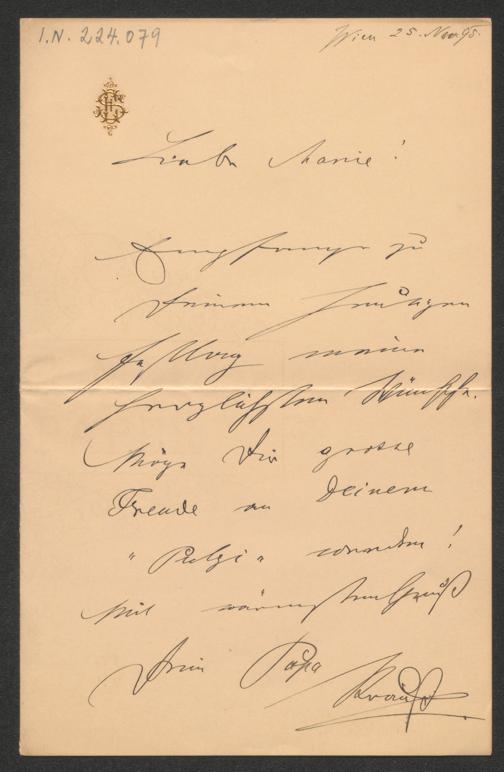 I.N. 224.079
Wien 25. Nov 95.
Liebe Marie!
Empfange zu
Deinem heutigen
Festtag meine
herzlichsten Wünsche.
Möge Dir grosse
Freude an Deinem
"Putzi" werden!
Mit wärmstem Gruß
Dein Papa